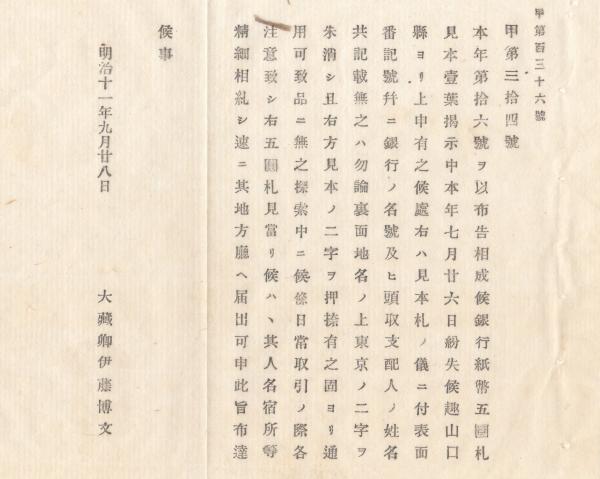 甲第百三十六號
甲第三拾四號
本年第拾六號ヲ以布告相成候銀行紙幣五圓札
見本壹葉揭示中本年七月廿六日紛失候趣山口
縣ヨリ上申有之候處右ハ見本札ノ儀ニ付表面
番記號幷ニ銀行ノ名號及ヒ頭取支配人ノ姓名
共記載無之ハ勿論裏面地名ノ上東京ノ二字ヲ
朱消シ且右方見本ノ二字ヲ押捺有之固ヨリ通
用可致品ニ無之探索中ニ候條日常取引ノ際各
注意致シ右五圓札見當リ候ハヽ其人名宿所等
精細相糺シ速ニ其地方廳ヘ届出可申此旨布達
候事
明治十一年九月廿八日
大藏卿伊藤博文